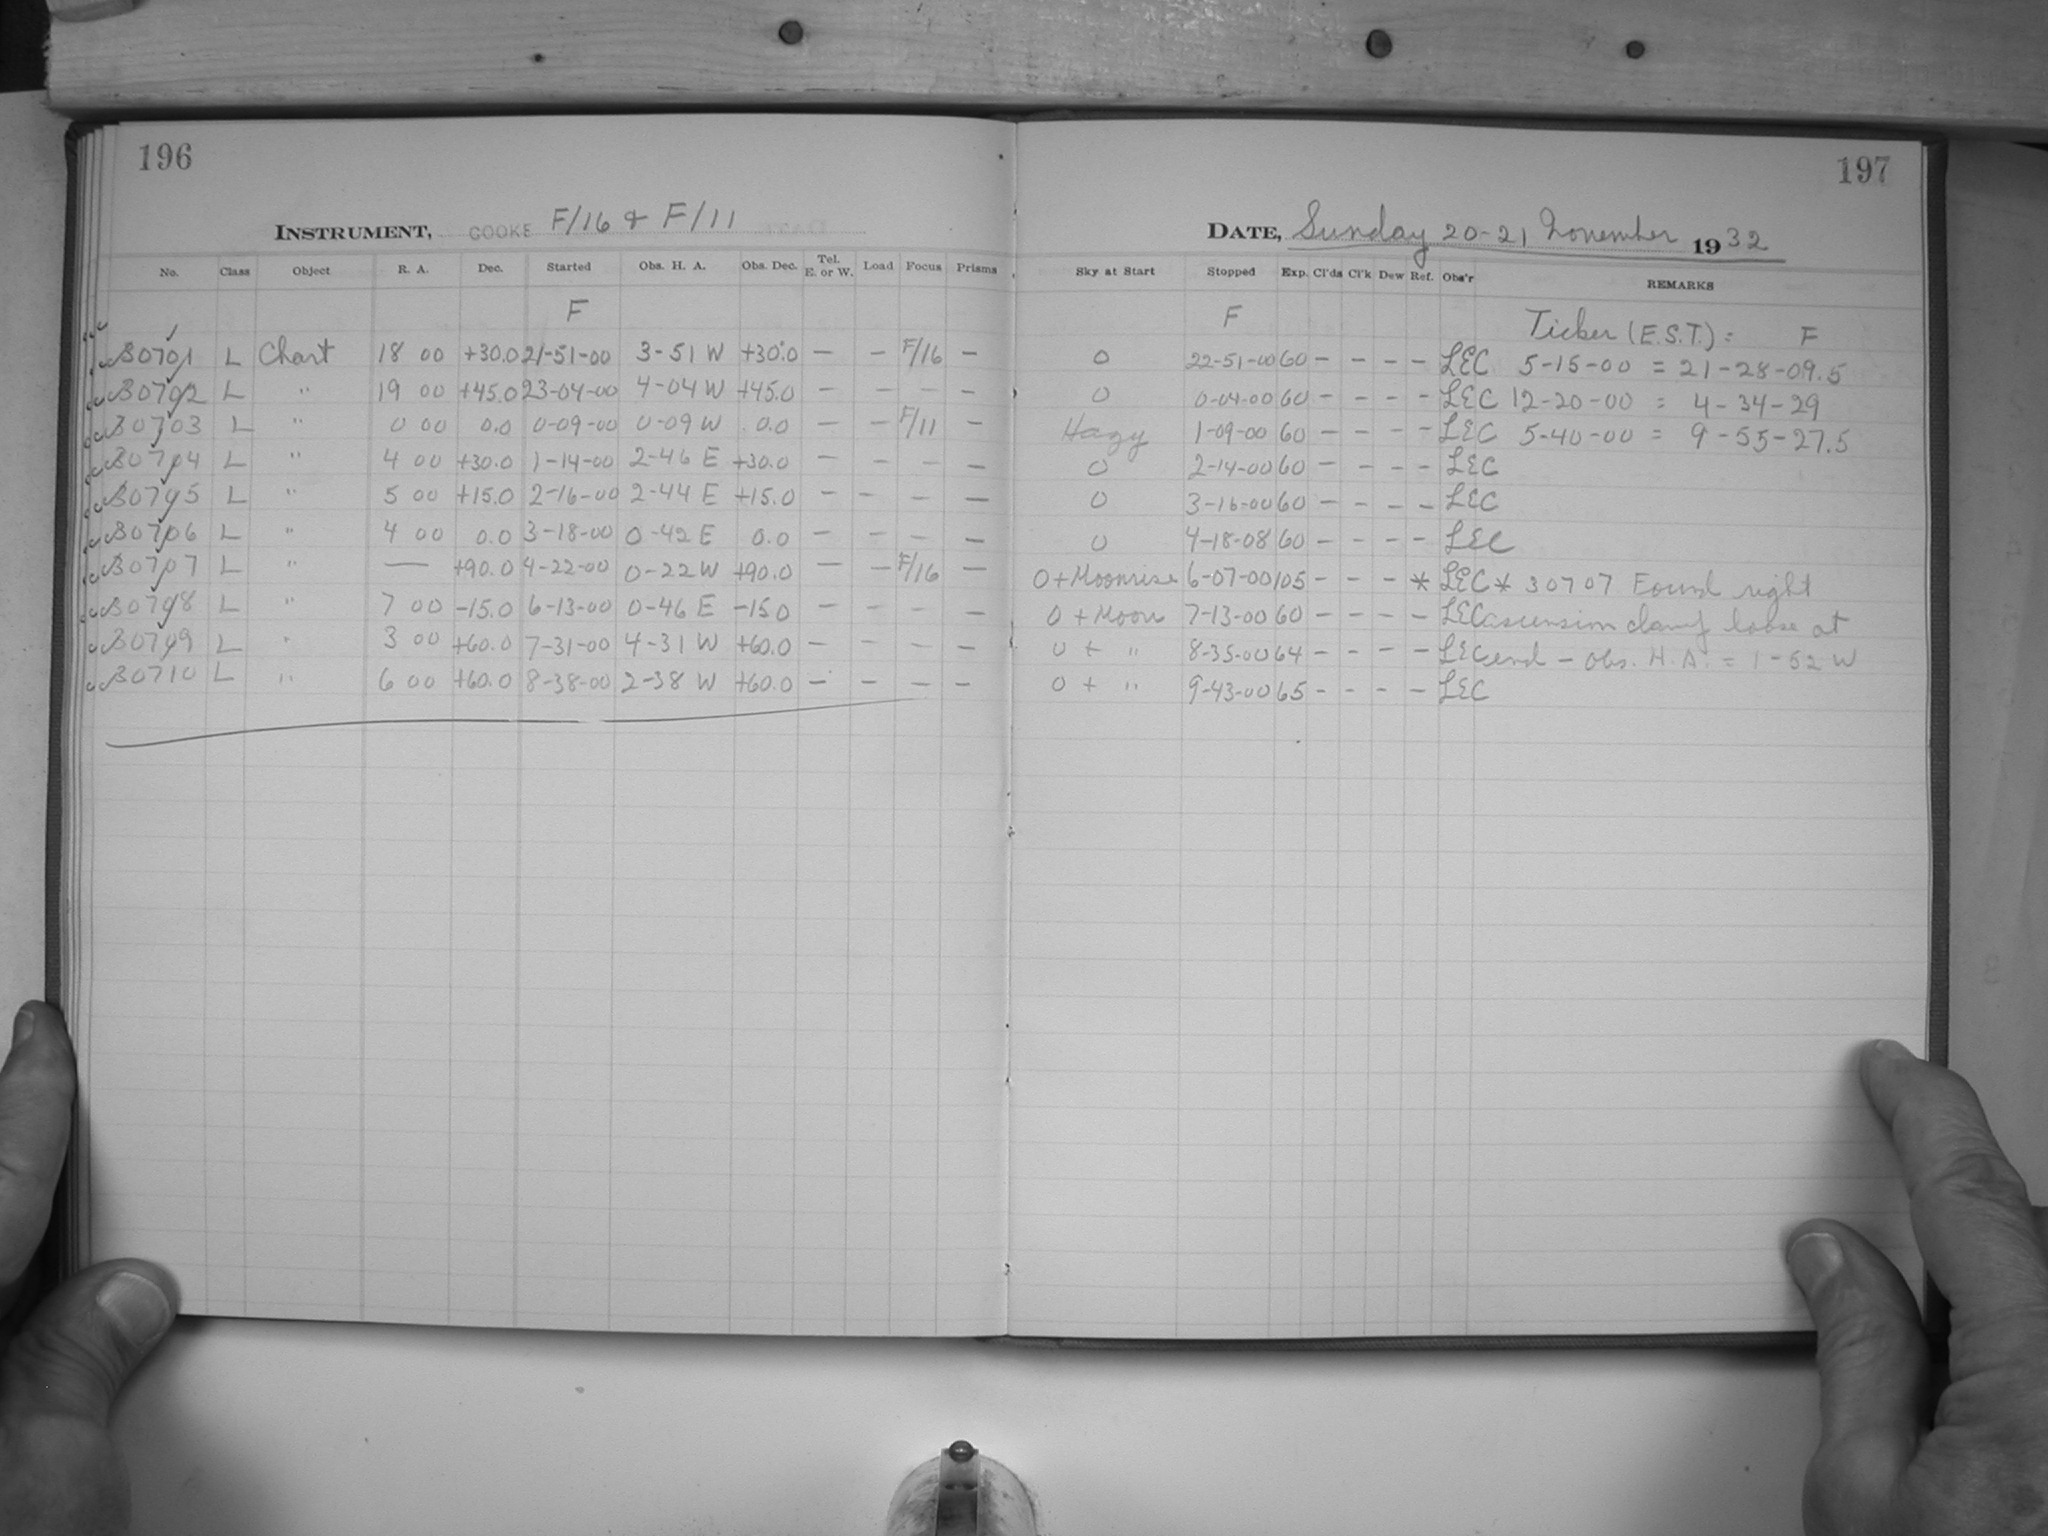 196
INSTRUMENT, COOKE F/16 & F/11
No. Class Object R. A. Dec. Started Obs. H. A. Obs. Dec. Tel. E. or W. Load Focus Prisms
F
30701 L Chart 18 00 +30.0 21-51-00 3-51 W +30.0 — — F/16 —
30702 L " 19 00 +45.0 23-04-00 4-04 W +45.0 — — — —
30703 L " 0 00 0.0 0-09-00 0-09 W 0.0 — — F/11 —
30704 L " 4 00 +30.0 1-14-00 2-46 E +30.0 — — — —
30705 L " 5 00 +15.0 2-16-00 2-44 E +15.0 — — — —
30706 L " 4 00 0.0 3-18-00 0-42 E 0.0 — — — —
30707 L " — +90.0 4-22-00 0-22 W +90.0 — — F/16 —
30708 L " 7 00 -15.0 6-13-00 0-46 E -15.0 — — — —
30709 L " 3 00 +60.0 7-31-00 4-31 W +60.0 — — — —
30710 L " 6 00 +60.0 8-38-00 2-38 W +60.0 — — — —
197
DATE, Sunday 20-21 November 1932
Sky at Start Stopped Exp. Cl'ds Cl'k Dew Ref. Obs'r REMARKS
F Ticker (E.S.T.) = F
0 22-51-00 60 - - - - LEC 5-15-00 = 21-28-09.5
0 0-04-00 60 - - - - LEC 12-20-00 = 4-34-29
Hazy 1-09-00 60 - - - - LEC 5-40-00 = 9-55-27.5
0 2-14-00 60 - - - - LEC
0 3-16-00 60 - - - - LEC
0 4-18-08 60 - - - - LEC
0 + Moonrise 6-07-00 105 - - - * LEC * 30707 Found right
0 + Moon 7-13-00 60 - - - - LEC ascension clamp loose at
0 + " 8-35-00 64 - - - - LEC end - Obs. H.A. = 1-52 W
0 + " 9-43-00 65 - - - - LEC